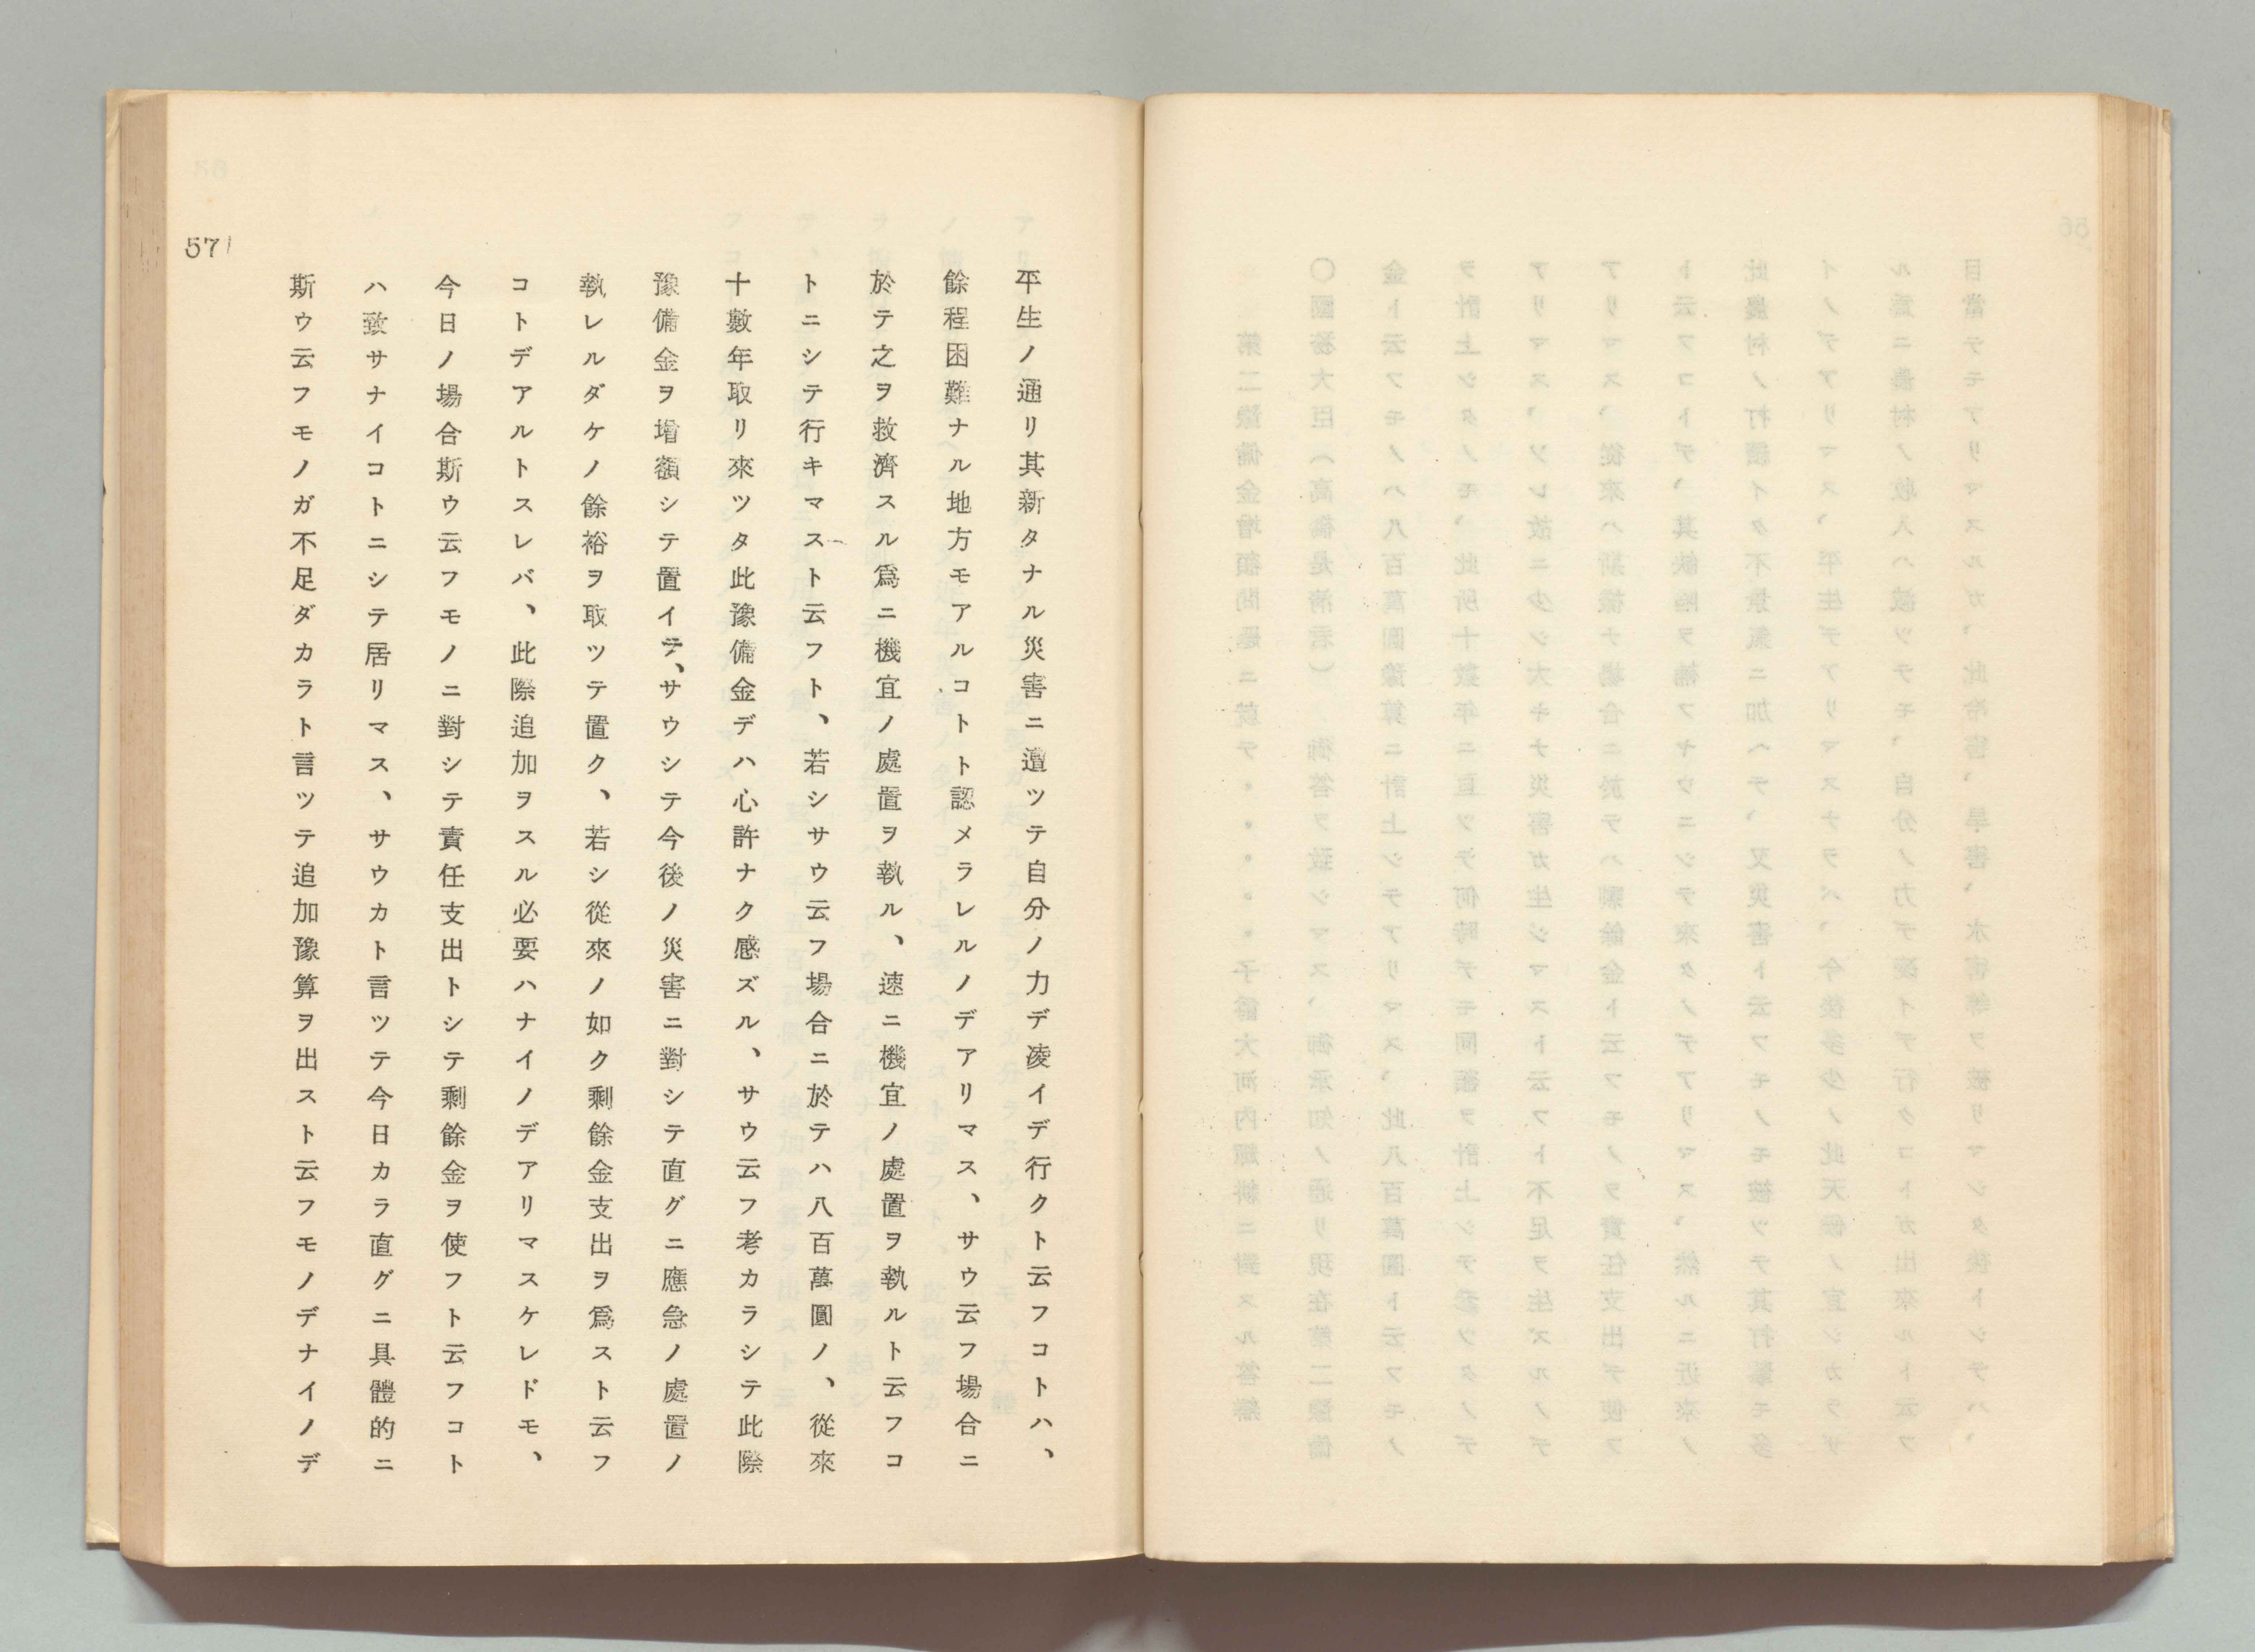 平生ノ通リ其新タナル災害ニ遭ツテ自分ノ力デ凌イデ行クト云フコトハ、
餘程困難ナル地方モアルコトト認メラレルノデアリマス、サウ云フ場合ニ
於テ之ヲ救濟スル爲ニ機宜ノ處置ヲ執ル、速ニ機宜ノ處置ヲ執ルト云フコ
トニシテ行キマスト云フト、若シサウ云フ場合ニ於テハ八百萬圓ノ、從來
十數年取リ來ツタ此豫備金デハ心許ナク感ズル、サウ云フ考カラシテ此際
豫備金ヲ增額シテ置イテ、サウシテ今後ノ災害ニ對シテ直グニ應急ノ處置ノ
執レルダケノ餘裕ヲ取ツテ置ク、若シ從來ノ如ク剩餘金支出ヲ爲スト云フ
コトデアルトスレバ、此際追加ヲスル必要ハナイノデアリマスケレドモ、
今日ノ場合斯ウ云フモノニ對シテ責任支出トシテ剩餘金ヲ使フト云フコト
ハ致サナイコトニシテ居リマス、サウカト言ツテ今日カラ直グニ具體的ニ
斯ウ云フモノガ不足ダカラト言ツテ追加豫算ヲ出スト云フモノデナイノデ
57